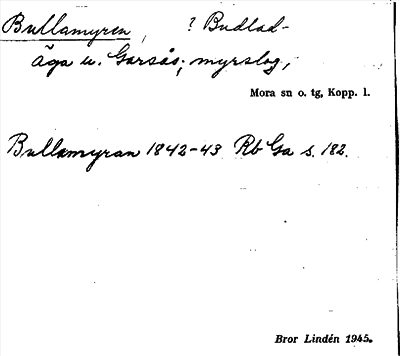 Bullamyren, ? Budlad-
Äga u. Garsås; myrslog,
Mora sn o. tg, Kopp. l.
Bullamyran 1842-43 Rb Ga s. 182.
Bror Lindén 1945.